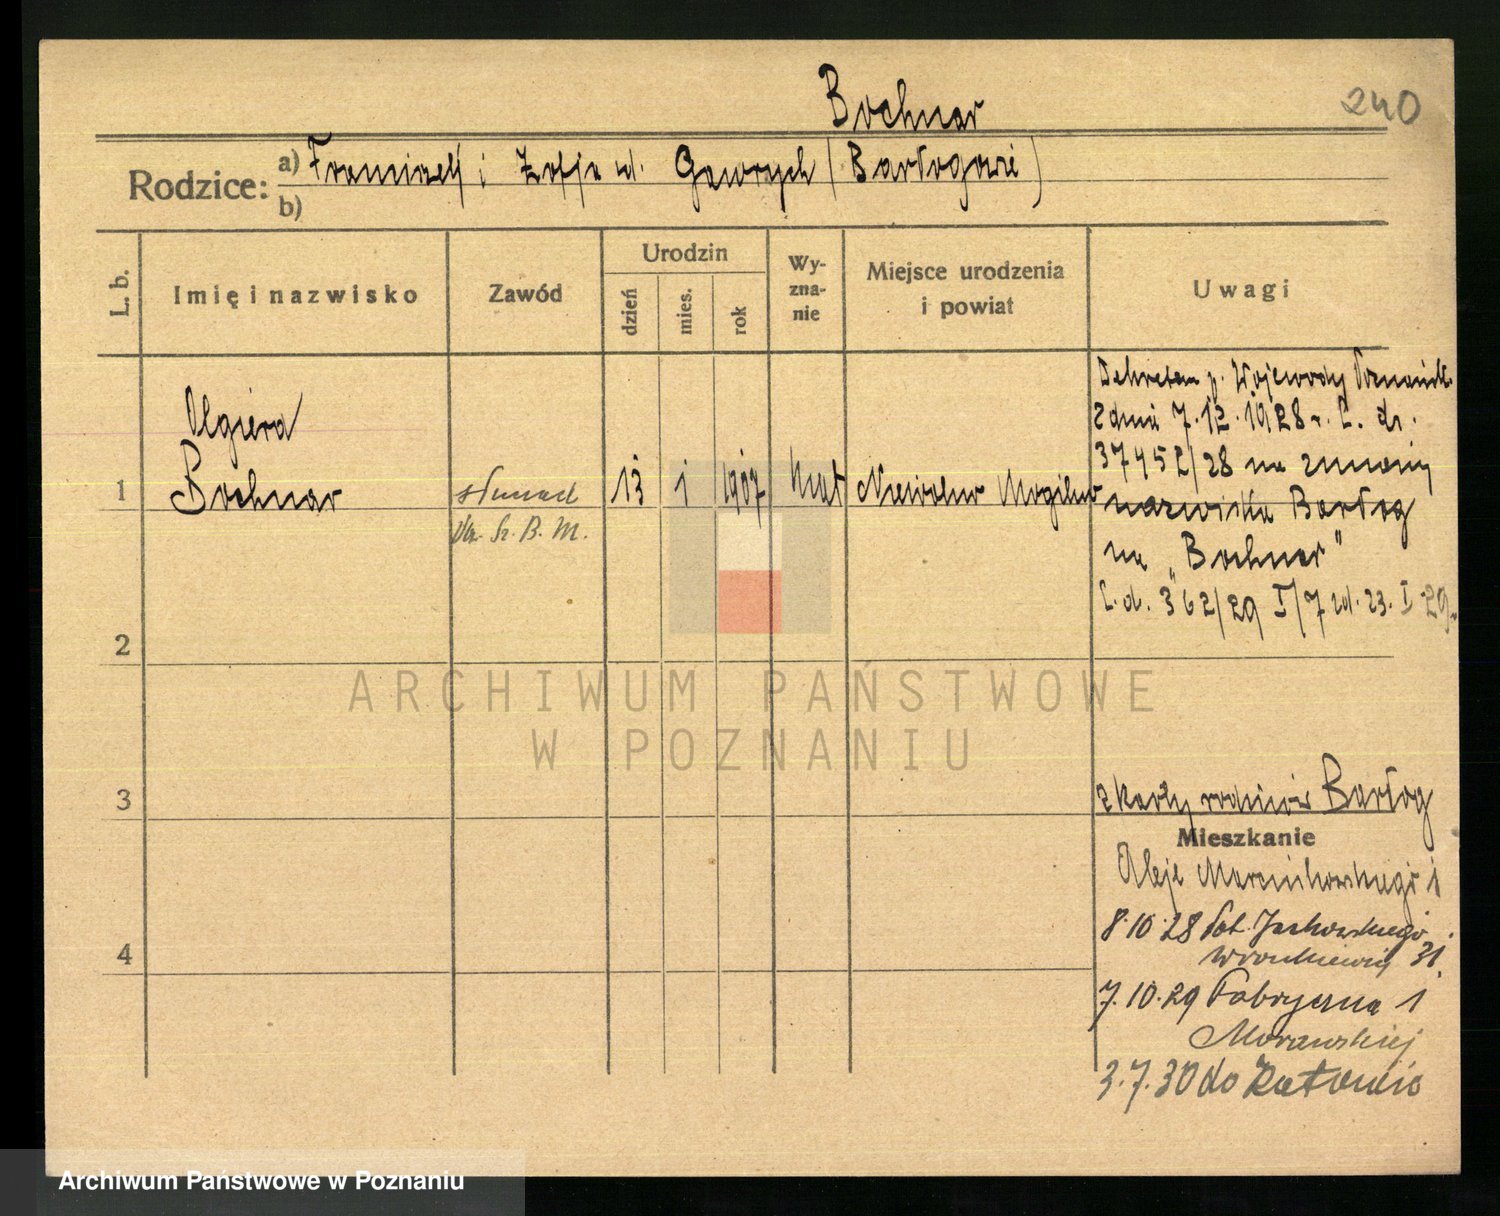 Bochnar
240
Rodzice:
a) Franciszek i Zofja ur. Gawrych (Bartłogowie)
b)
L. b.
Imię i nazwisko
Zawód
Urodzin
dzień
mies.
rok
Wy-
zna-
nie
Miejsce urodzenia
i powiat
Uwagi
1
Olgierd
Bochnar
13
1
1907
Niewolno Mogilno
Dekretem p. Wojewody Poznańsk.
z dnia 7.12.1928 r. L. dz.
37452/28 na zmianę
nazwiska Bartłog
na „Bochnar"
L. d. 362/29 I/7 zd. 23. I 29.
2
3
4
z karty rodziców Bartłog
Mieszkanie
Aleje Marcinkowskiego 1
8.10.28 Jackowskiego 31
7.10.29 Fabryczna 1
Morawskiej
3.7.30 do Katowic
ARCHIWUM PAŃSTWOWE
W POZNANIU
Archiwum Państwowe w Poznaniu